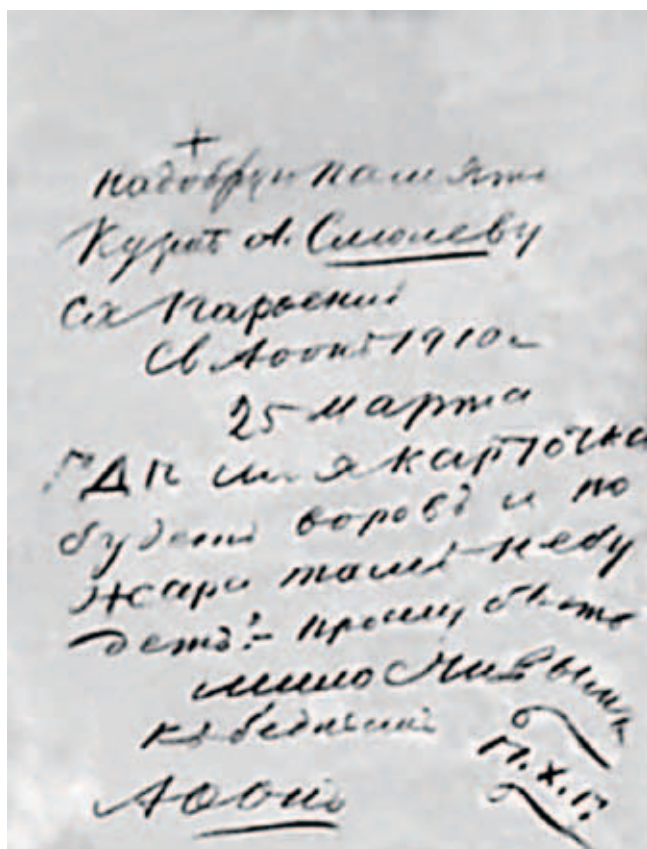 +
надобрую память
Кузьмѣ А. Смолеву
Сх Парѳений
Св Аѳонъ 1910 г
25 марта
ГДѢ сия карточка
будетъ воровъ и по
жара тамъ небу
детъ! – прошу быть
мило стивымъ
къ беднымъ
П.Х.Г.
Аѳонъ